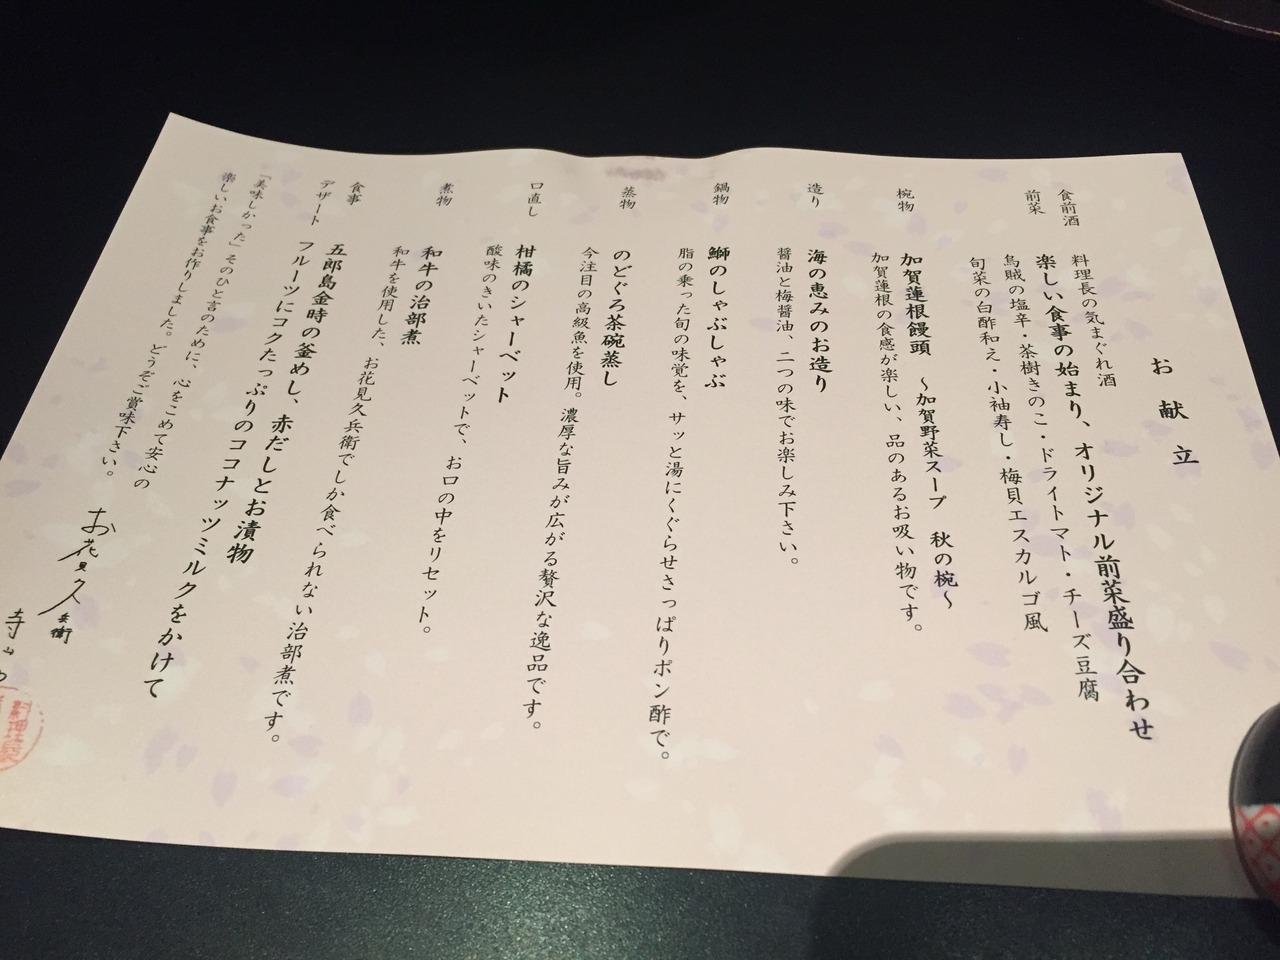 お献立
食前酒 料理長の気まぐれ酒
前菜 楽しい食事の始まり、オリジナル前菜盛り合わせ
烏賊の塩辛・茶樹きのこ・ドライトマト・チーズ豆腐
旬菜の白酢和え・小袖寿し・梅貝エスカルゴ風
椀物 加賀蓮根饅頭 〜加賀野菜スープ 秋の椀〜
加賀蓮根の食感が楽しい、品のあるお吸い物です。
造り 海の恵みのお造り
醤油と梅醤油、二つの味でお楽しみ下さい。
鍋物 鰤のしゃぶしゃぶ
脂の乗った旬の味覚を、サッと湯にくぐらせさっぱりポン酢で。
蒸物 のどぐろ茶碗蒸し
今注目の高級魚を使用。濃厚な旨みが広がる贅沢な逸品です。
口直し 柑橘のシャーベット
酸味のきいたシャーベットで、お口の中をリセット。
煮物 和牛の治部煮
和牛を使用した、お花見久兵衛でしか食べられない治部煮です。
食事 五郎島金時の釜めし、赤だしとお漬物
デザート フルーツにコクたっぷりのココナッツミルクをかけて
「美味しかった」そのひと言のために、心をこめて安心の
楽しいお食事をお作りしました。どうぞご賞味下さい。
お花見久兵衛